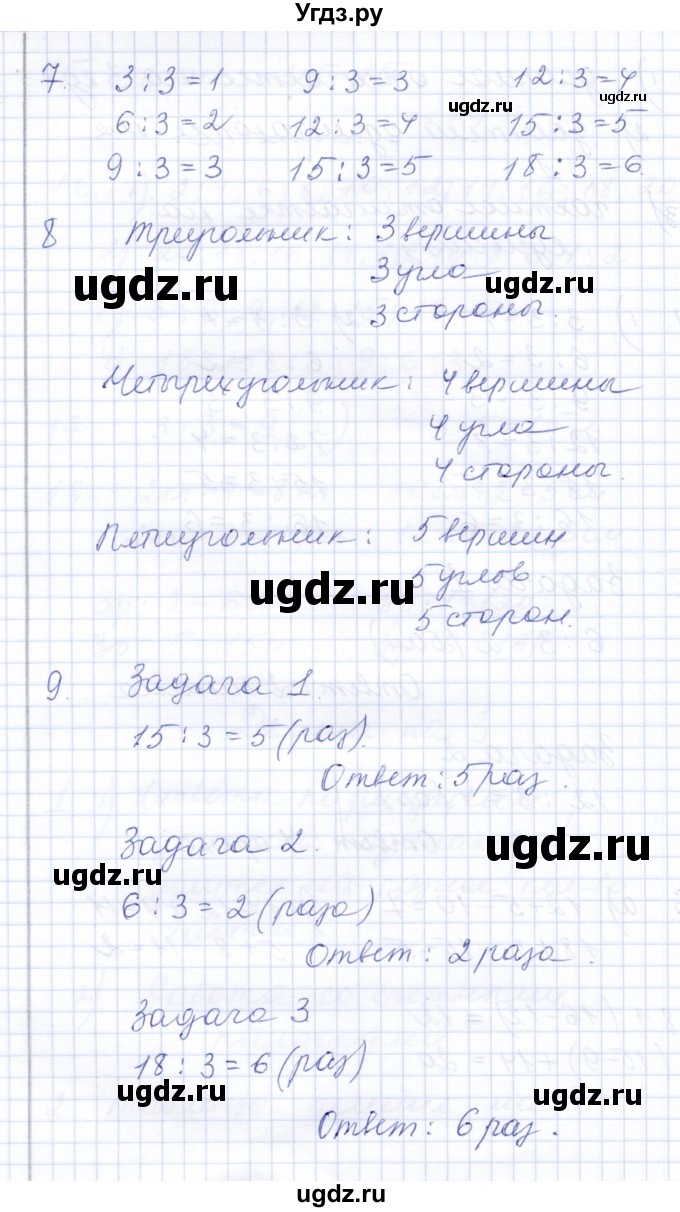 Угдз.ру
7. 3 : 3 = 1 9 : 3 = 3 12 : 3 = 4
ugdz.ru ugdz.ru
6 : 3 = 2 12 : 3 = 4 15 : 3 = 5
9 : 3 = 3 15 : 3 = 5 18 : 3 = 6.
8 Треугольник: 3 вершины
3 угла
ugdz.ru ugdz.ru
3 стороны.
Четырехугольник: 4 вершины
4 угла
4 стороны.
Пятиугольник: 5 вершин
5 углов
ugdz.ru
5 сторон.
9. Задача 1.
15 : 3 = 5 (раз).
Ответ: 5 раз.
Задача 2.
ugdz.ru
ugdz.ru
6 : 3 = 2 (раза)
Ответ: 2 раза.
Задача 3
18 : 3 = 6 (раз)
ugdz.ru ugdz.ru
Ответ: 6 раз.
ugdz.ru